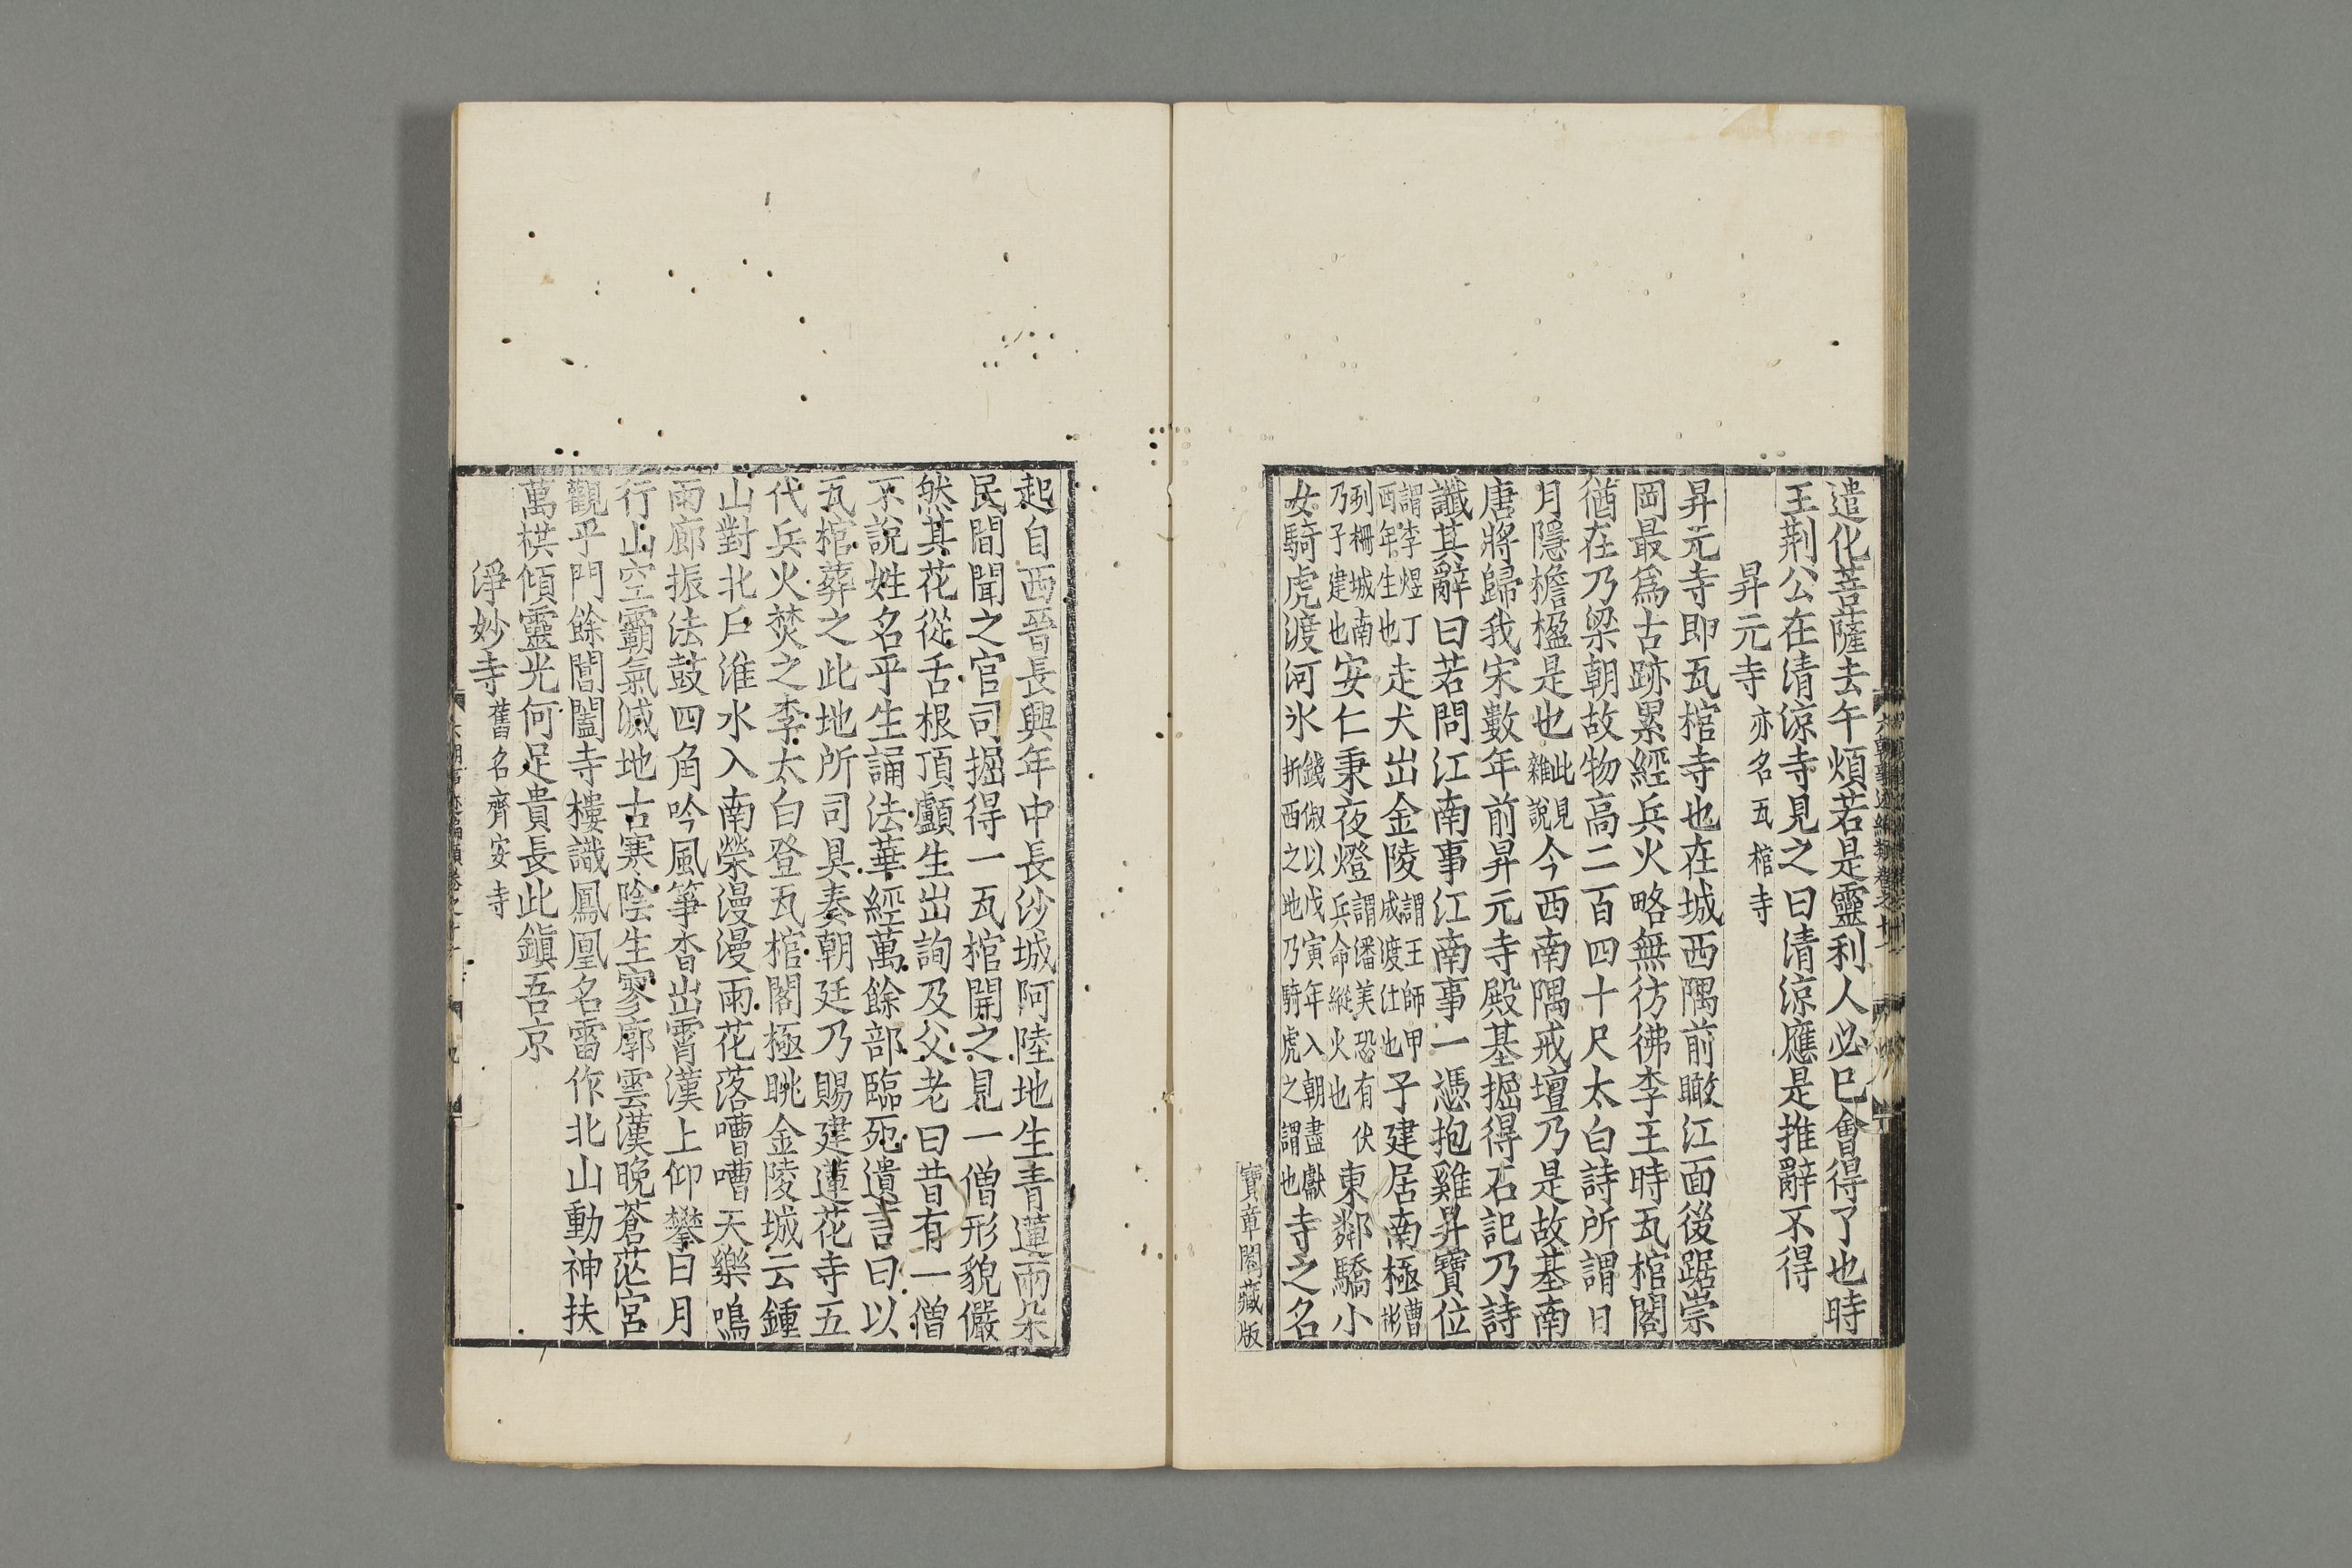 遣化菩薩去午煩若是靈利人必巳會得了也時
王荆公在清涼寺見之曰清涼應是推辭不得
昇元寺亦名瓦棺寺
昇元寺即瓦棺寺也在城西隅前瞰江面後踞崇
岡最爲古跡累經兵火略無彷彿李王時瓦棺閣
猶在乃梁朝故物高二百四十尺太白詩所謂日
月隱檐楹是也此見雜說今西南隅戒壇乃是故基南
唐將歸我宋數年前昇元寺殿基掘得石記乃詩
讖其辭曰若問江南事江南事一憑抱雞昇寶位
謂李煜丁酉年生也走犬出金陵謂王師甲戌渡江也子建居南極曹彬
列柵城南乃子建也安仁秉夜燈謂潘美恐有伏兵命縱火也東鄰驕小
女騎虎渡河氷錢俶以戊寅年入朝盡獻浙西之地乃騎虎之謂也寺之名
寶章閣藏版
起自西晉長興年中長沙城阿陸地生青蓮兩朵
民間聞之官司掘得一瓦棺開之見一僧形貌儼
然其花從舌根頂顱生出詢及父老曰昔有一僧
不說姓名平生誦法華經萬餘部臨死遺言曰以
瓦棺葬之此地所司具奏朝廷乃賜建蓮花寺五
代兵火焚之李太白登瓦棺閣極眺金陵城云鍾
山對北戶淮水入南榮漫漫雨花落嘈嘈天樂鳴
兩廊振法鼓四角吟風箏杳出霄漢上仰攀日月
行山空霸氣滅地古寒陰生寥廓雲漢晚蒼茫宮
觀乎門餘閶闔寺樓識鳳凰名雷作北山動神扶
萬栱傾靈光何足貴長此鎭吾京
淨妙寺舊名齊安寺